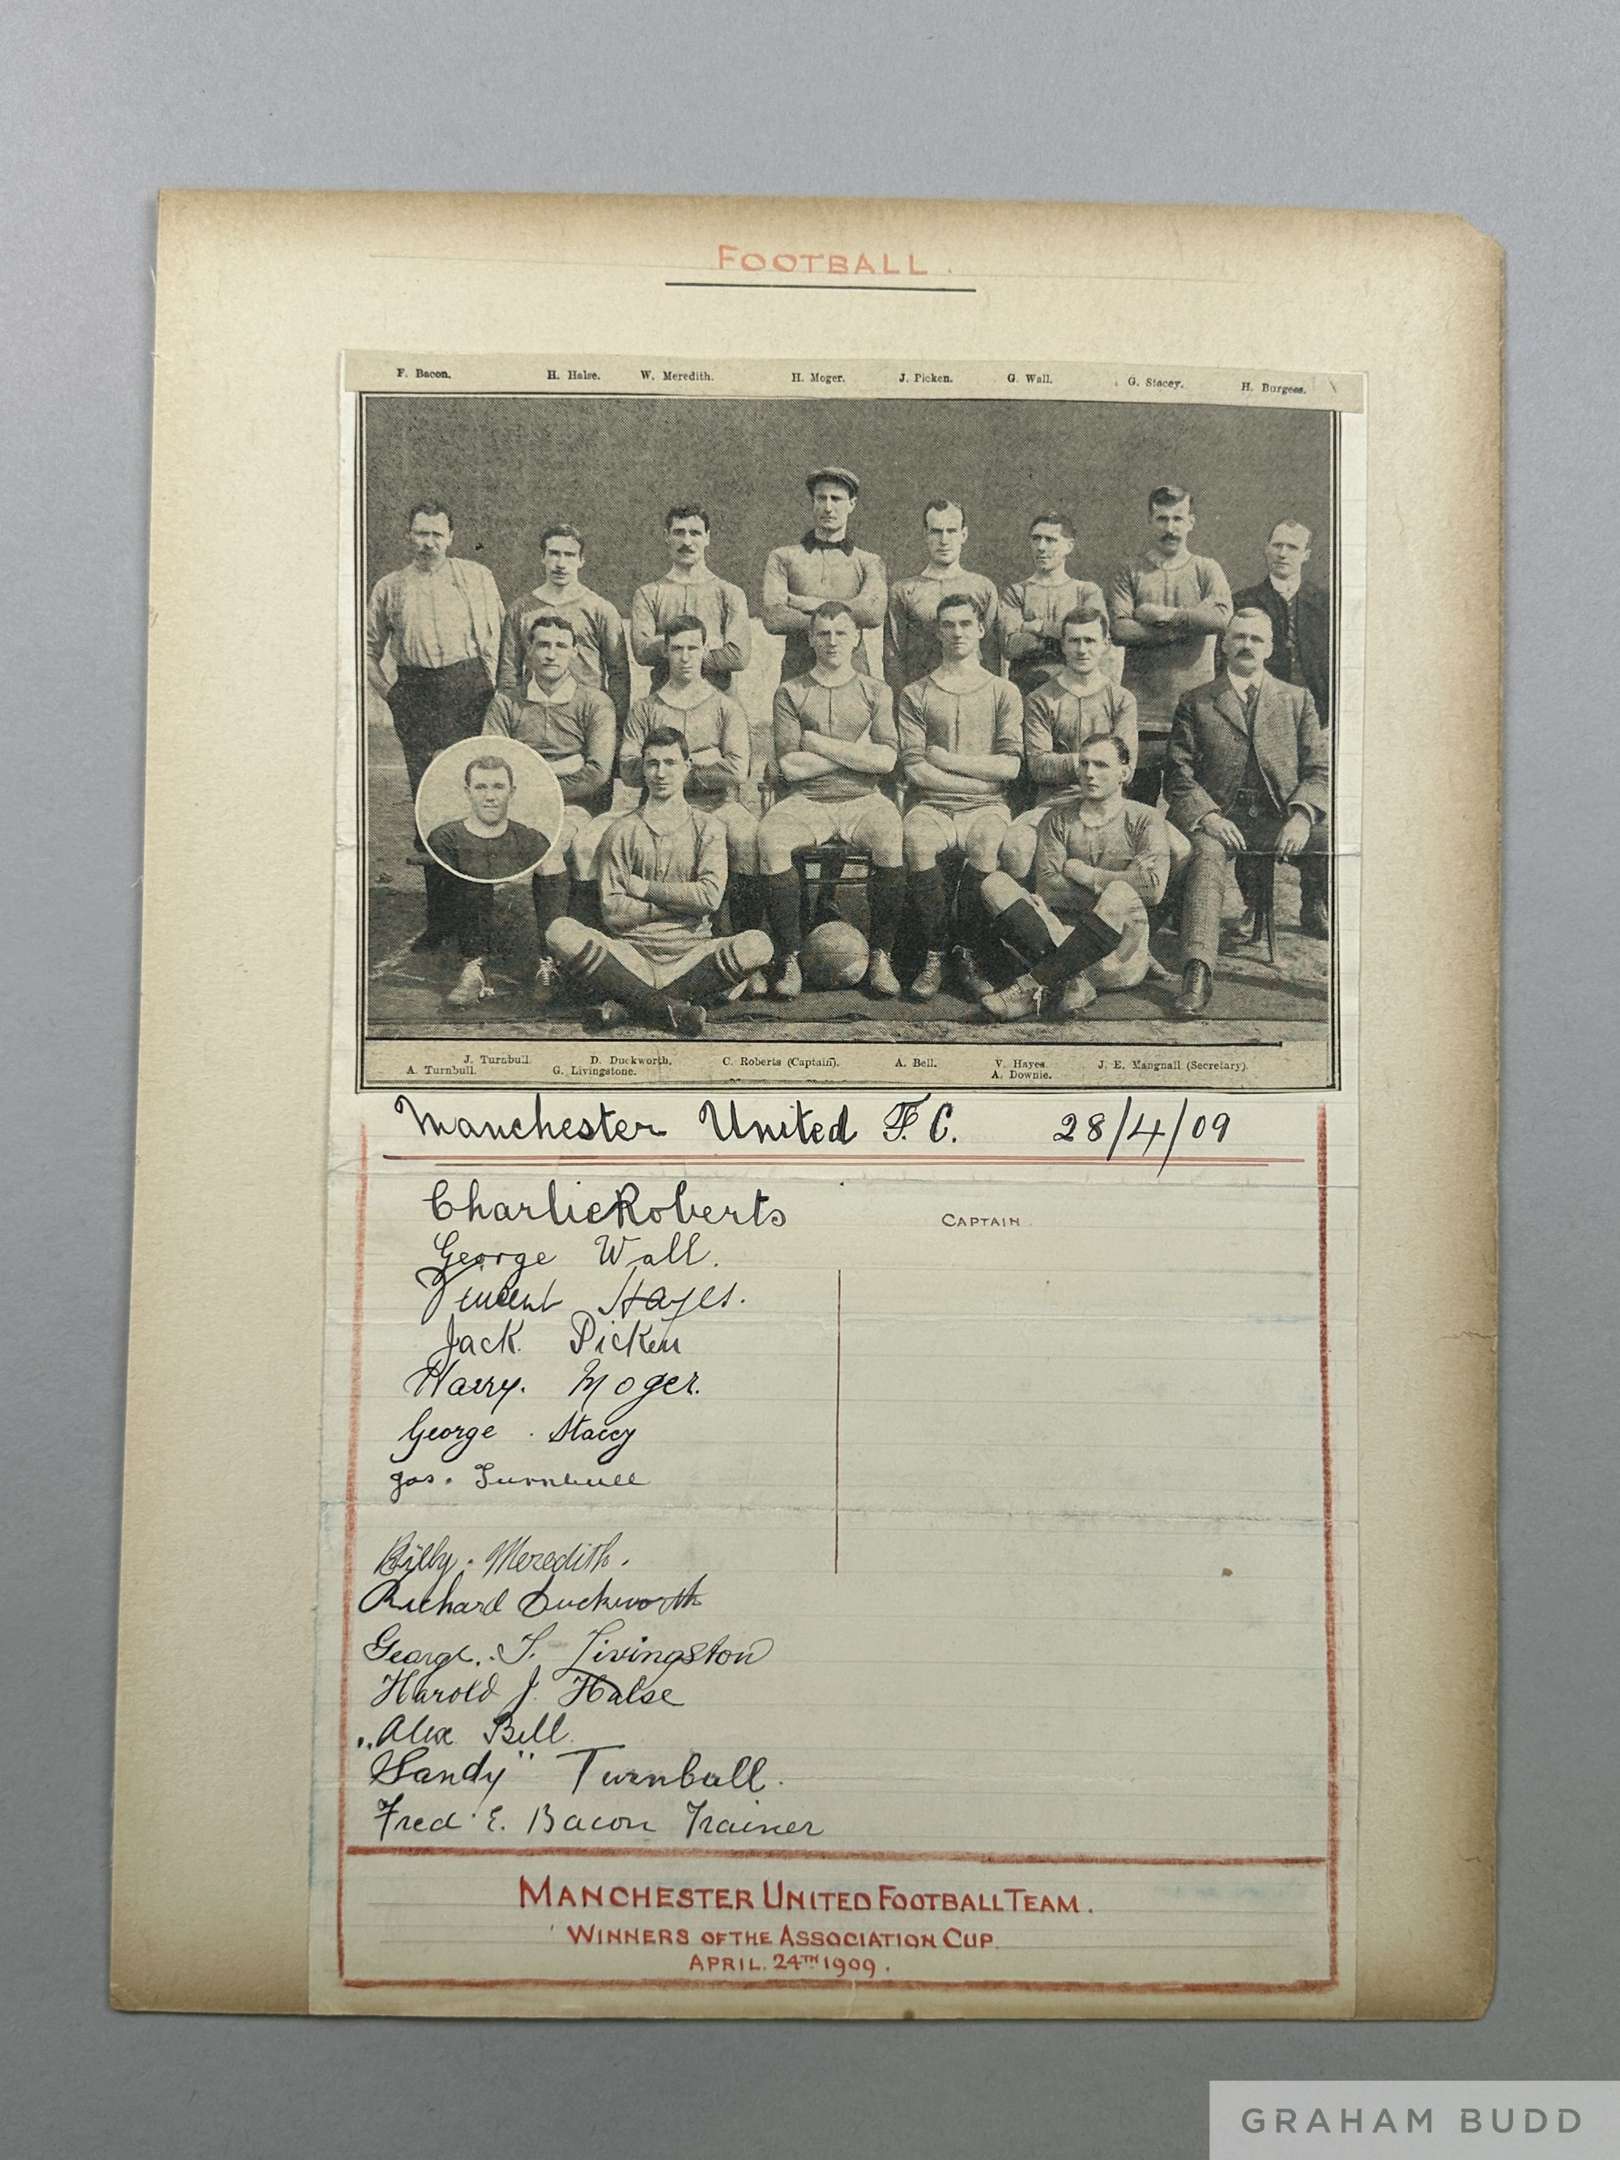 FOOTBALL.
F. Bacon. H. Halse. W. Meredith. H. Moger. J. Picken. G. Wall. G. Stacey. H. Burgess.
J. Turnbull. D. Duckworth. C. Roberts (Captain). A. Bell. V. Hayes. J. E. Mangnall (Secretary).
A. Turnbull. G. Livingstone. A. Downie.
Manchester United F.C. 28/4/09
Charlie Roberts CAPTAIN.
George Wall.
Vincent Hayes.
Jack Picken
Harry. Moger.
George. Stacey
Jas. Turnbull
Billy. Meredith.
Richard Duckworth
George. T. Livingston
Harold J. Halse
Alex Bell.
"Sandy" Turnbull.
Fred E. Bacon Trainer
MANCHESTER UNITED FOOTBALL TEAM.
WINNERS OF THE ASSOCIATION CUP.
APRIL. 24TH 1909.
GRAHAM BUDD